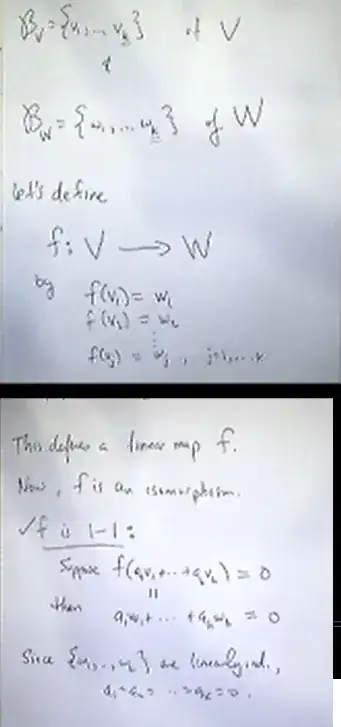 B_V = {v₁, ... v_k} of V
&
B_W = {w₁, ... w_k} of W
let's define
f: V → W
by f(v₁) = w₁
f(v₂) = w₂
⋮
f(v_j) = w_j, j=1,...k
This defines a linear map f.
Now, f is an isomorphism.
✓f is 1-1:
Suppose f(a₁v₁+...+a_kv_k) = 0
||
then a₁w₁+ ... +a_kw_k = 0
Since {w₁,..,w_k} are linearly ind.,
a₁=a₂= ... =a_k=0.